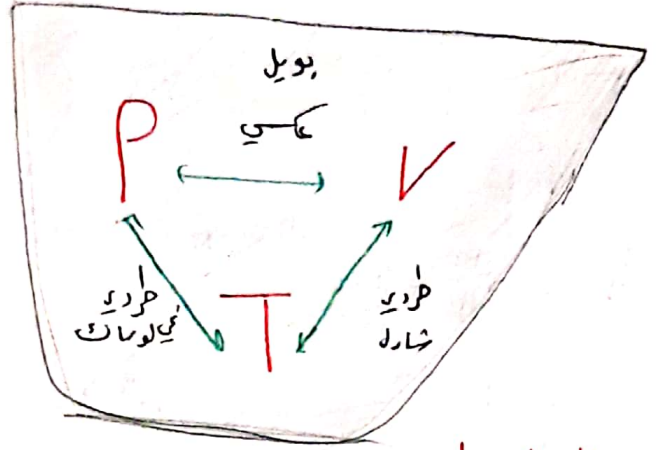 بويل
عكسي
P
V
T
طردي
غي لوساك
طردي
شارل